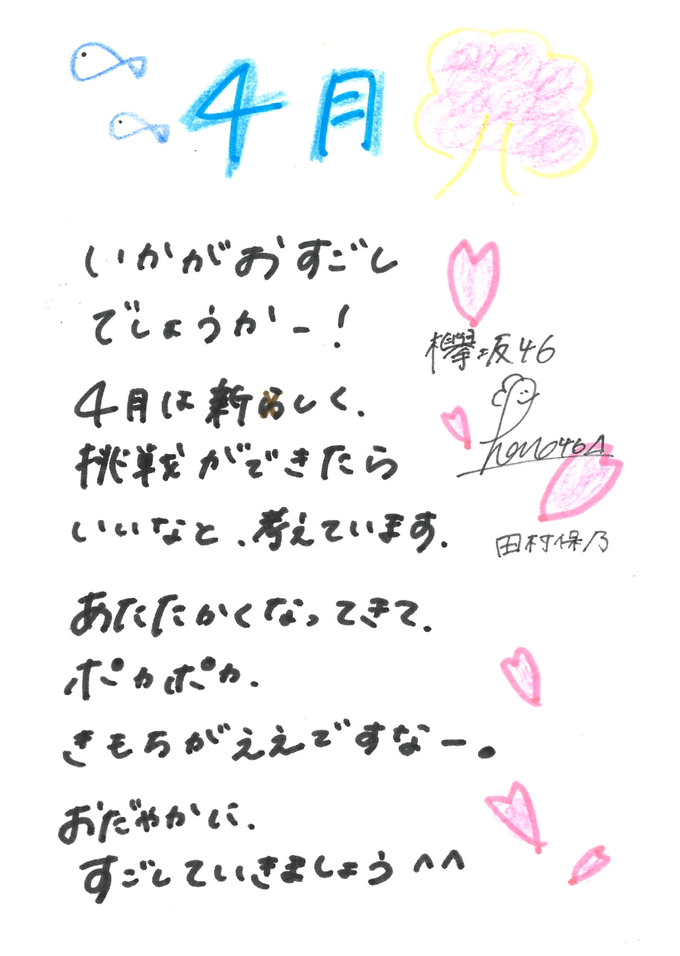 4月
いかがおすごし
でしょうかー!
欅坂46
hono46△
4月は新らしく、
挑戦ができたら
いいなと、考えています。
田村保乃
あたたかくなってきて、
ポカポカ、
きもちがええですなー。
おだやかに、
すごしていきましょう^^